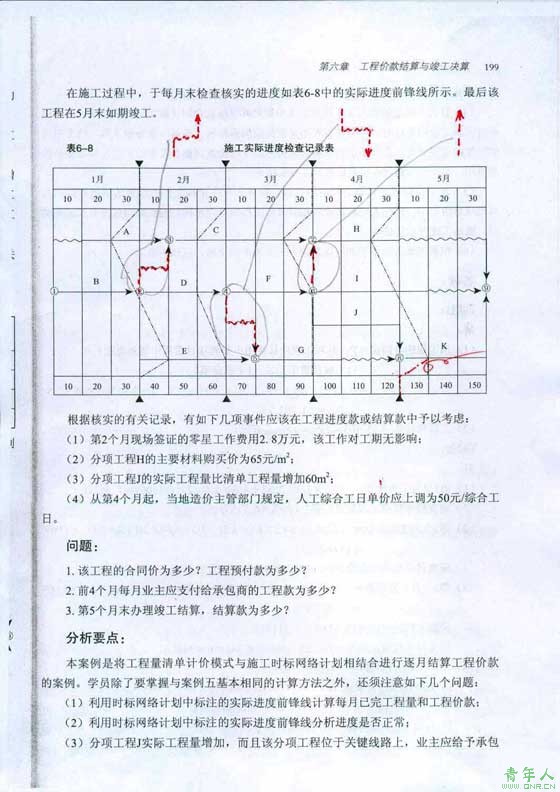 第六章　工程价款结算与竣工决算　199
在施工过程中，于每月末检查核实的进度如表6-8中的实际进度前锋线所示。最后该
工程在5月末如期竣工。
表6-8　施工实际进度检查记录表
1月　2月　3月　4月　5月
10　20　30　10　20　30　10　20　30　10　20　30　10　20　30
A　C　H
B　D　F　I
J
E　G　K
10　20　30　40　50　60　70　80　90　100　110　120　130　140　150
根据核实的有关记录，有如下几项事件应该在工程进度款或结算款中予以考虑：
（1）第2个月现场签证的零星工作费用2.8万元，该工作对工期无影响；
（2）分项工程H的主要材料购买价为65元/m²；
（3）分项工程J的实际工程量比清单工程量增加60m²；
（4）从第4个月起，当地造价主管部门规定，人工综合工日单价应上调为50元/综合工
日。
问题：
1. 该工程的合同价为多少？工程预付款为多少？
2. 前4个月每月业主应支付给承包商的工程款为多少？
3. 第5个月末办理竣工结算，结算款为多少？
分析要点：
本案例是将工程量清单计价模式与施工时标网络计划相结合进行逐月结算工程价款
的案例。学员除了要掌握与案例五基本相同的计算方法之外，还须注意如下几个问题：
（1）利用时标网络计划中标注的实际进度前锋线计算每月已完工程量和工程价款；
（2）利用时标网络计划中标注的实际进度前锋线分析进度是否正常；
（3）分项工程J实际工程量增加，而且该分项工程位于关键线路上，业主应给予承包
青年人
WWW.QNR.CN